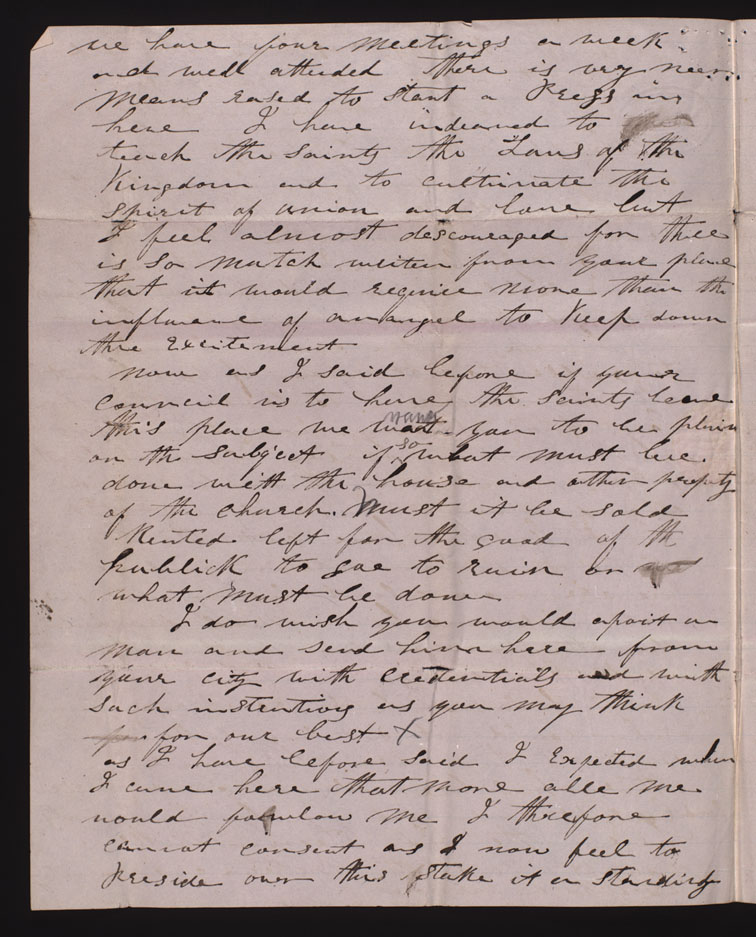 we have four meetings a week
and well attended There is very near
means rased to start a Press in
here I have indeavred to
teach the Saints the Laws of the
Kingdom and to cultivate the
spirit of union and love but
I feel almost descouraged for thee
is so match writen from your place
that it would require more than the
influence of an angel to Keep down
the Excitement
now as I said before if your
council is to have the Saints leave
this place we want you to be plain
on the subject if so what must be
done with the house and other property
of the church. Must it be sold
Rented left for the good of th
publick to goe to ruin or
what must be done
I do wish you would apoint a
man and send him here from
your city with credentials and with
such instructions as you may think
for our best X
as I have before said I Expected when
I came here that more able me
would follow me I threfore
cannot consent as I now feel to
Preside over this stake it a standing